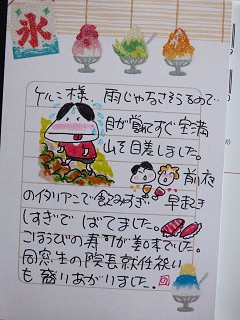 氷
ケルニ様、雨じゃなさそうなので…
目が覚めてすぐ宝満
山を目差しました。
前夜
のイタリアンで飲みすぎ、早おき
しすぎで ばてました。
ごほうびの寿司が美味でした。
同窓生の院長就任祝い
も盛りあがりました。